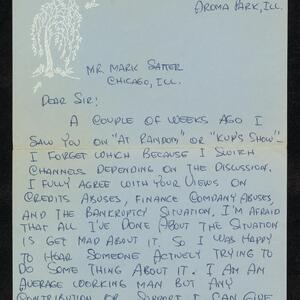 AROMA PARK, ILL.
MR. MARK SATTER
CHICAGO, ILL.
DEAR SIR:
A COUPLE OF WEEKS AGO I
SAW YOU ON "AT RANDOM" OR "KUP'S SHOW"
I FORGET WHICH BECAUSE I SWITCH
CHANNELS DEPENDING ON THE DISCUSSION.
I FULLY AGREE WITH YOUR VIEWS ON
CREDITS ABUSES, FINANCE COMPANY ABUSES,
AND THE BANKRUPTCY SITUATION. I'M AFRAID
THAT ALL I'VE DONE ABOUT THE SITUATION
IS GET MAD ABOUT IT. SO I WAS HAPPY
TO HEAR SOMEONE ACTIVELY TRYING TO
DO SOME THING ABOUT IT. I AM AN
AVERAGE WORKING MAN BUT ANY
CONTRIBUTION OR SUPPORT I CAN GIVE